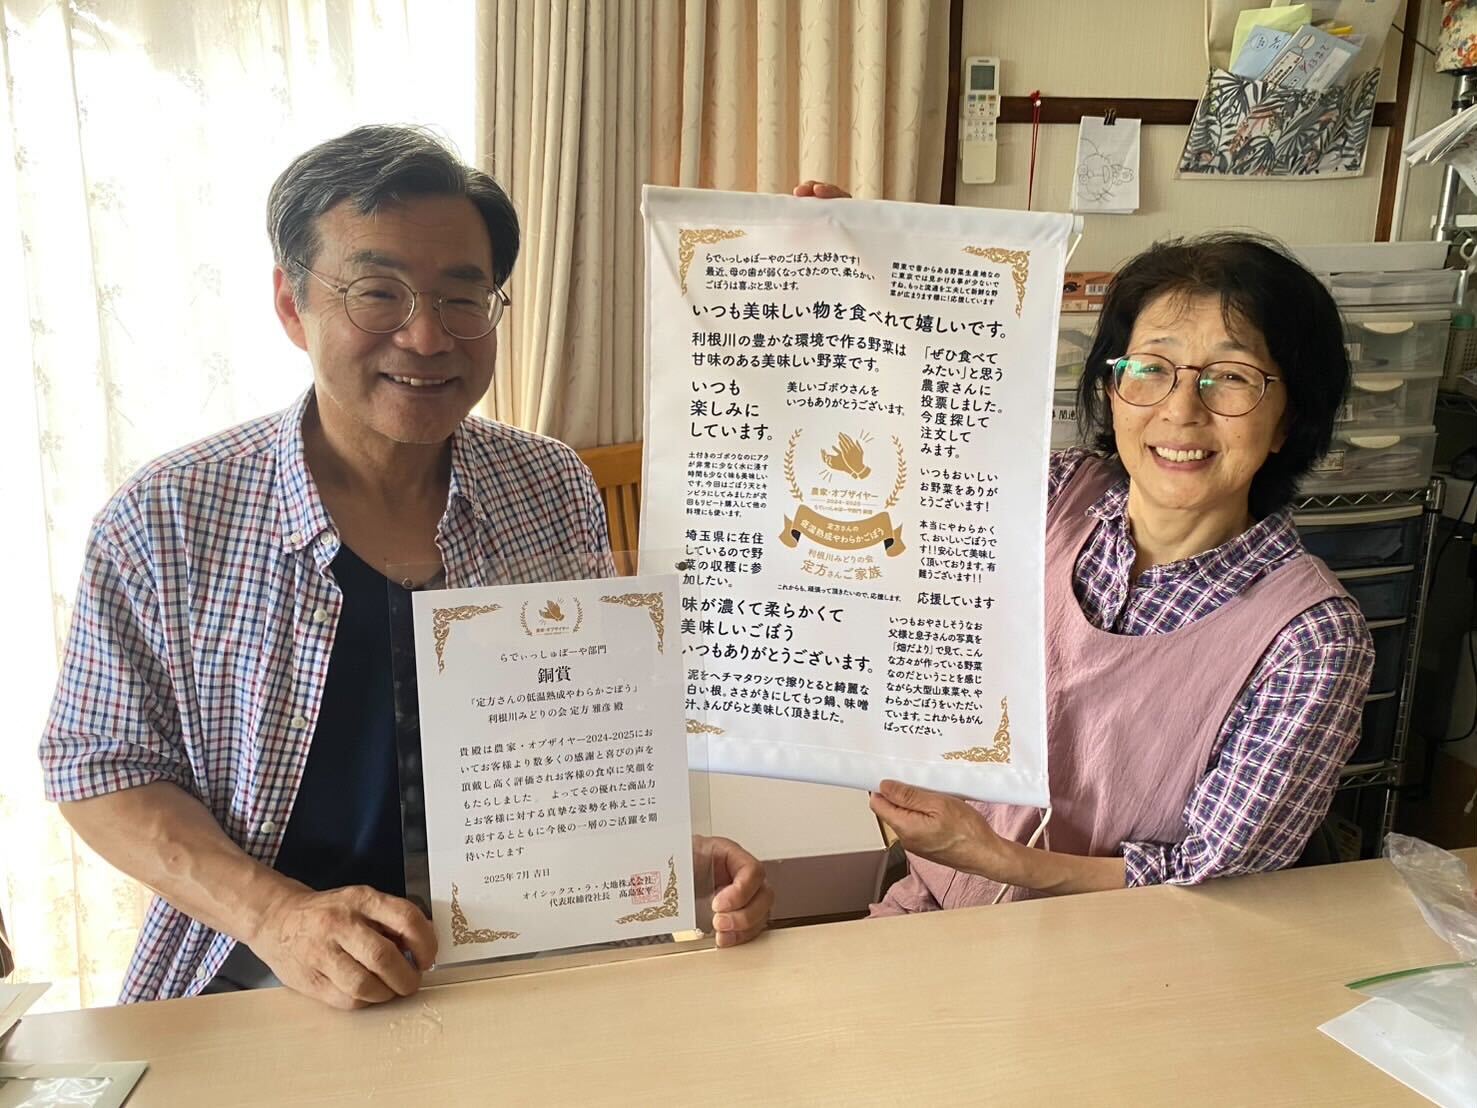 らでぃっしゅぼーやのごぼう、大好きです!
最近、母の歯が弱くなってきたので、柔らかい
ごぼうは喜ぶと思います。
関東で昔からある野菜生産地なの
に東京では見かける事が少ないで
すね。もっと流通を工夫して新鮮な野
菜が広まります様に!応援しています
いつも美味しい物を食べれて嬉しいです。
利根川の豊かな環境で作る野菜は
甘味のある美味しい野菜です。
「ぜひ食べて
みたい」と思う
農家さんに
投票しました。
今度探して
注文して
みます。
いつも
楽しみに
しています。
美しいゴボウさんを
いつもありがとうございます。
土付きのゴボウなのにアク
が非常に少なく水に浸す
時間も少なく味も美味しい
です。今回はごぼう天とキ
ンピラにしてみましたが次
回もリピート購入して他の
料理にも使います。
農家・オブザイヤー
2024-2025
らでぃっしゅぼーや部門 銅賞
定方さんの
低温熟成やわらかごぼう
利根川みどりの会
定方さんご家族
これからも、頑張って頂きたいので、応援します。
いつもおいしい
お野菜をありが
とうございます!
本当にやわらかく
て、おいしいごぼうで
す!!安心して美味し
く頂いております。有
難うございます!!
埼玉県に在住
しているので野
菜の収穫に参
加したい。
応援しています
味が濃くて柔らかくて
美味しいごぼう
いつもありがとうございます。
いつもおやさしそうなお
父様と息子さんの写真を
「畑だより」で見て、こん
な方々が作っている野菜
なのだということを感じ
ながら大型山東菜や、や
わらかごぼうをいただい
ています。これからもがん
ばってください。
泥をヘチマタワシで擦りとると綺麗な
白い根。ささがきにしてもつ鍋、味噌
汁、きんぴらと美味しく頂きました。
農家・オブザイヤー
らでぃっしゅぼーや部門
銅賞
「定方さんの低温熟成やわらかごぼう」
利根川みどりの会 定方 雅彦 殿
貴殿は農家・オブザイヤー2024-2025にお
いてお客様より数多くの感謝と喜びの声を
頂戴し高く評価されお客様の食卓に笑顔を
もたらしました。 よってその優れた商品力
とお客様に対する真摯な姿勢を称えここに
表彰するとともに今後の一層のご活躍を期
待いたします
2025年 7月 吉日
オイシックス・ラ・大地株式会社
代表取締役社長 高島宏平